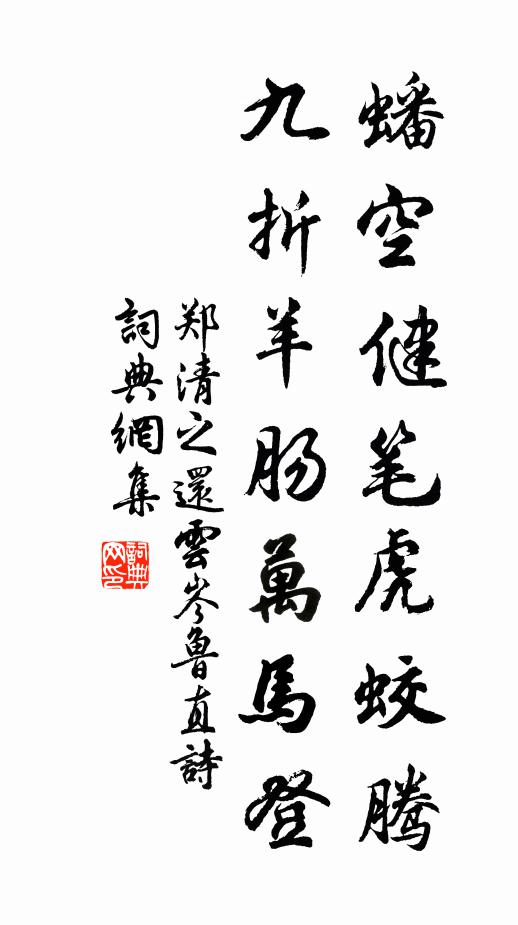 蟠空健笔虎蛟腾
九折羊肠萬馬登
郑清之還雲岑魯直詩
詞典網集
詞典网印